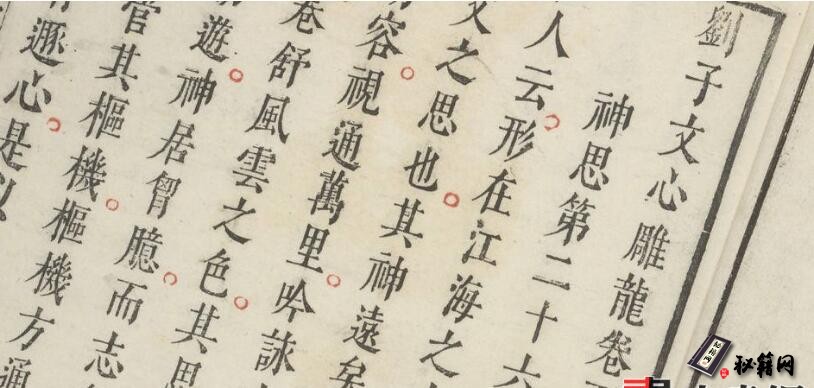 劉子文心雕龍卷
神思第二十六
人云。形在江海之
文之思也。其神遠矣
容。視通萬里。吟詠
卷舒風雲之色。其思
遊。神居胷臆。而志
管其樞機。樞機方通
遯心。是以
秘籍网